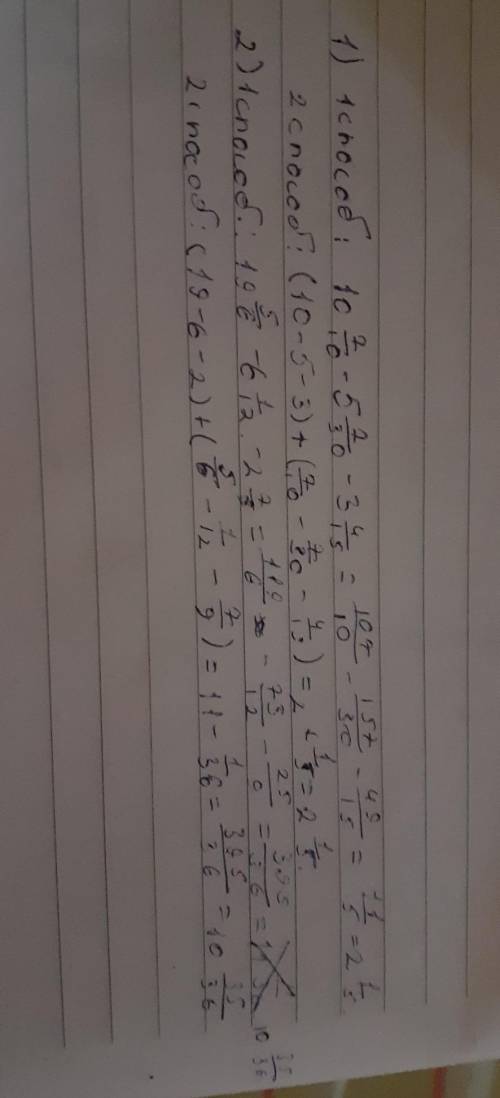 1) 1 способ: 10 7/10 - 5 7/30 - 3 4/15 = 107/10 - 157/30 - 49/15 = 11/5 = 2 1/5
2 способ: (10-5-3)+(7/10 - 7/30 - 4/15) = 2 + 1/5 = 2 1/5.
2) 1 способ: 19 5/6 - 6 1/12 - 2 7/9 = 119/6 - 73/12 - 25/9 = 395/36 = 10 35/36
2 способ: (19-6-2)+(5/6 - 1/12 - 7/9) = 11 - 1/36 = 395/36 = 10 35/36